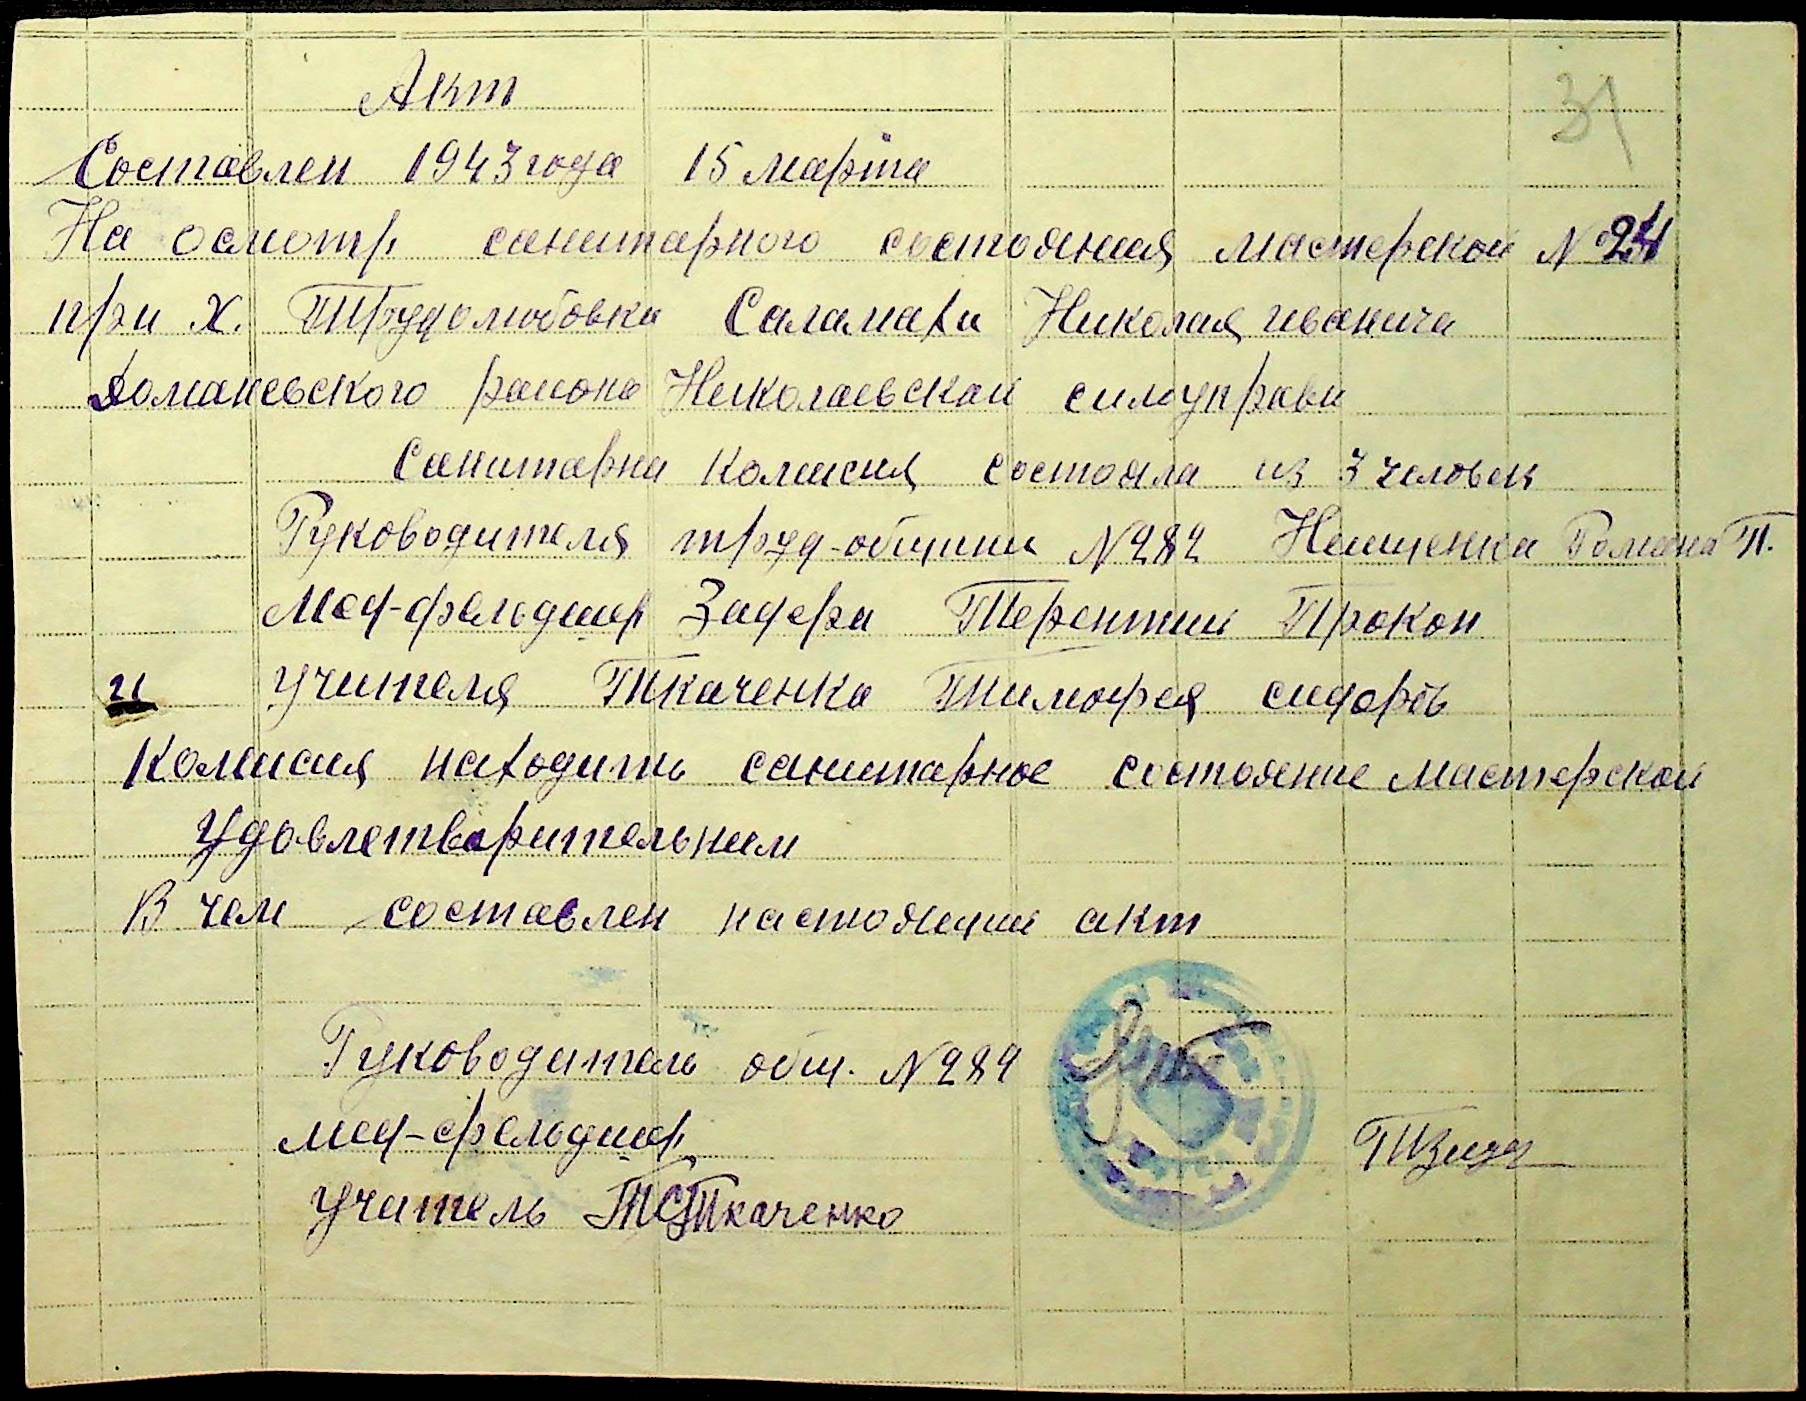 31
Акт
Составлен 1943 года 15 марта
На осмотр санитарного состояния мастерской №24
при х. Трудолюбовка Саламахи Николая ивановича
Доманевского района Николаевской силуправи
Санитарна Комисия состояла из 3 человек
Руководителя труд-общини №282 Нещенка Романа П.
Мед-фельдшер Задера Терентий Прокоп
и учителя Ткаченка Тимофея сидоров
Комисия находить санитарное состояние мастерской
Удовлетварительним
В чем составлен настоящий акт
Руководитель общ. №282
мед-фельдшер
учитель ТСТкаченко